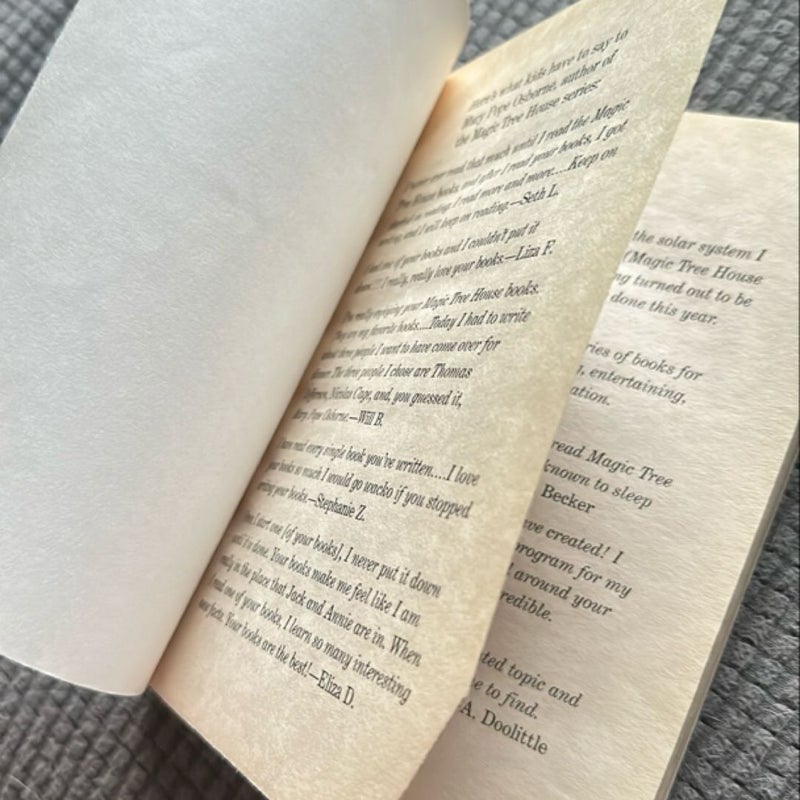 Here's what kids have to say to
Mary Pope Osborne, author of
the Magic Tree House series:
I never read that much until I read the Magic
Tree House books, and after I read your books, I got
hooked on reading. I read more and more....Keep on
writing, and I will keep on reading.—Seth L.
I read one of your books and I couldn't put it
down!!! I really, really love your books.—Liza F.
I'm really enjoying your Magic Tree House books.
They are my favorite books....Today I had to write
about three people I want to have come over for
dinner. The three people I chose are Thomas
Jefferson, Nicolas Cage, and, you guessed it,
Mary Pope Osborne.—Will B.
I have read every single book you've written....I love
your books so much I would go wacko if you stopped
writing your books.—Stephanie Z.
I start one [of your books], I never put it down
until I'm done. Your books make me feel like I am
really in the place that Jack and Annie are in. When
I read one of your books, I learn so many interesting
facts. Your books are the best!—Eliza D.
the solar system I
(Magic Tree House
turned out to be
done this year.
of books for
entertaining,
read Magic Tree
known to sleep
Becker
created! I
program for my
around your
topic and
to find.
A. Doolittle